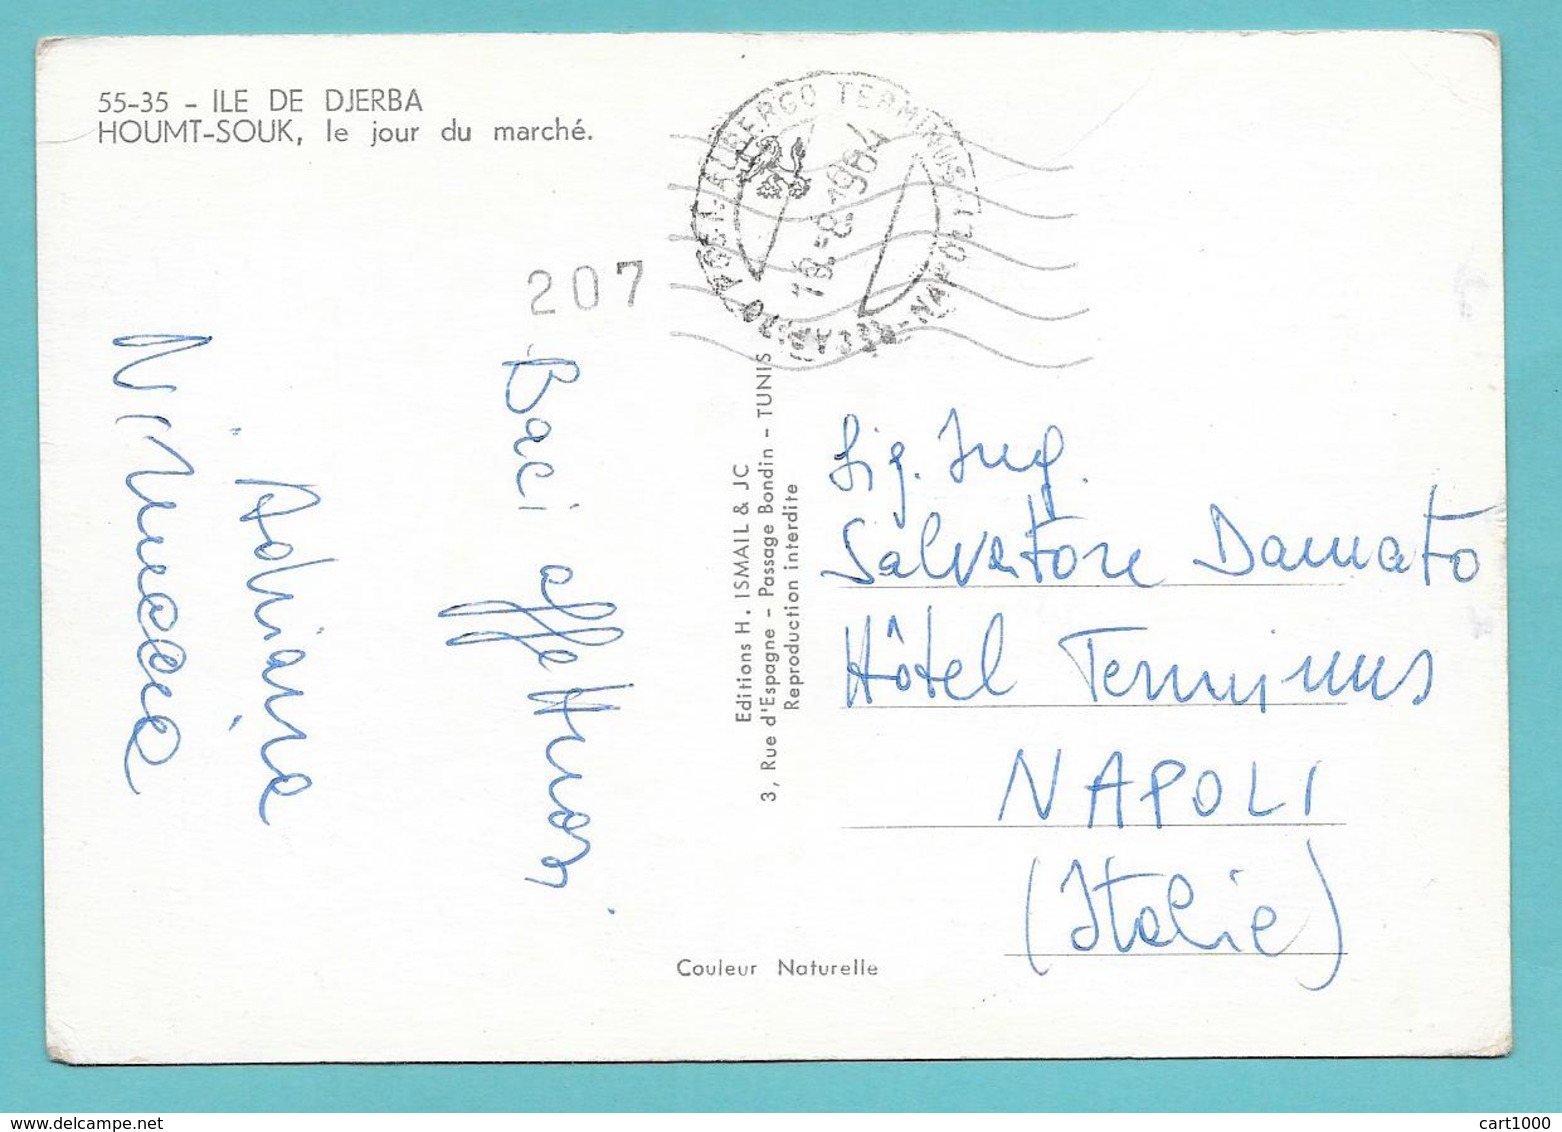 55-35 - ILE DE DJERBA
HOUMT-SOUK, le jour du marché.
ALBERGO TERMINUS - NAPOLI
18.-8.1964
207
Baci affettuosi
Adriana
Editions H. ISMAIL & JC
3, Rue d'Espagne - Passage Bondin - TUNIS
Reproduction interdite
Sig. Ing.
Salvatore Damato
Hôtel Terminus
NAPOLI
(Italie)
Couleur Naturelle
cart1000